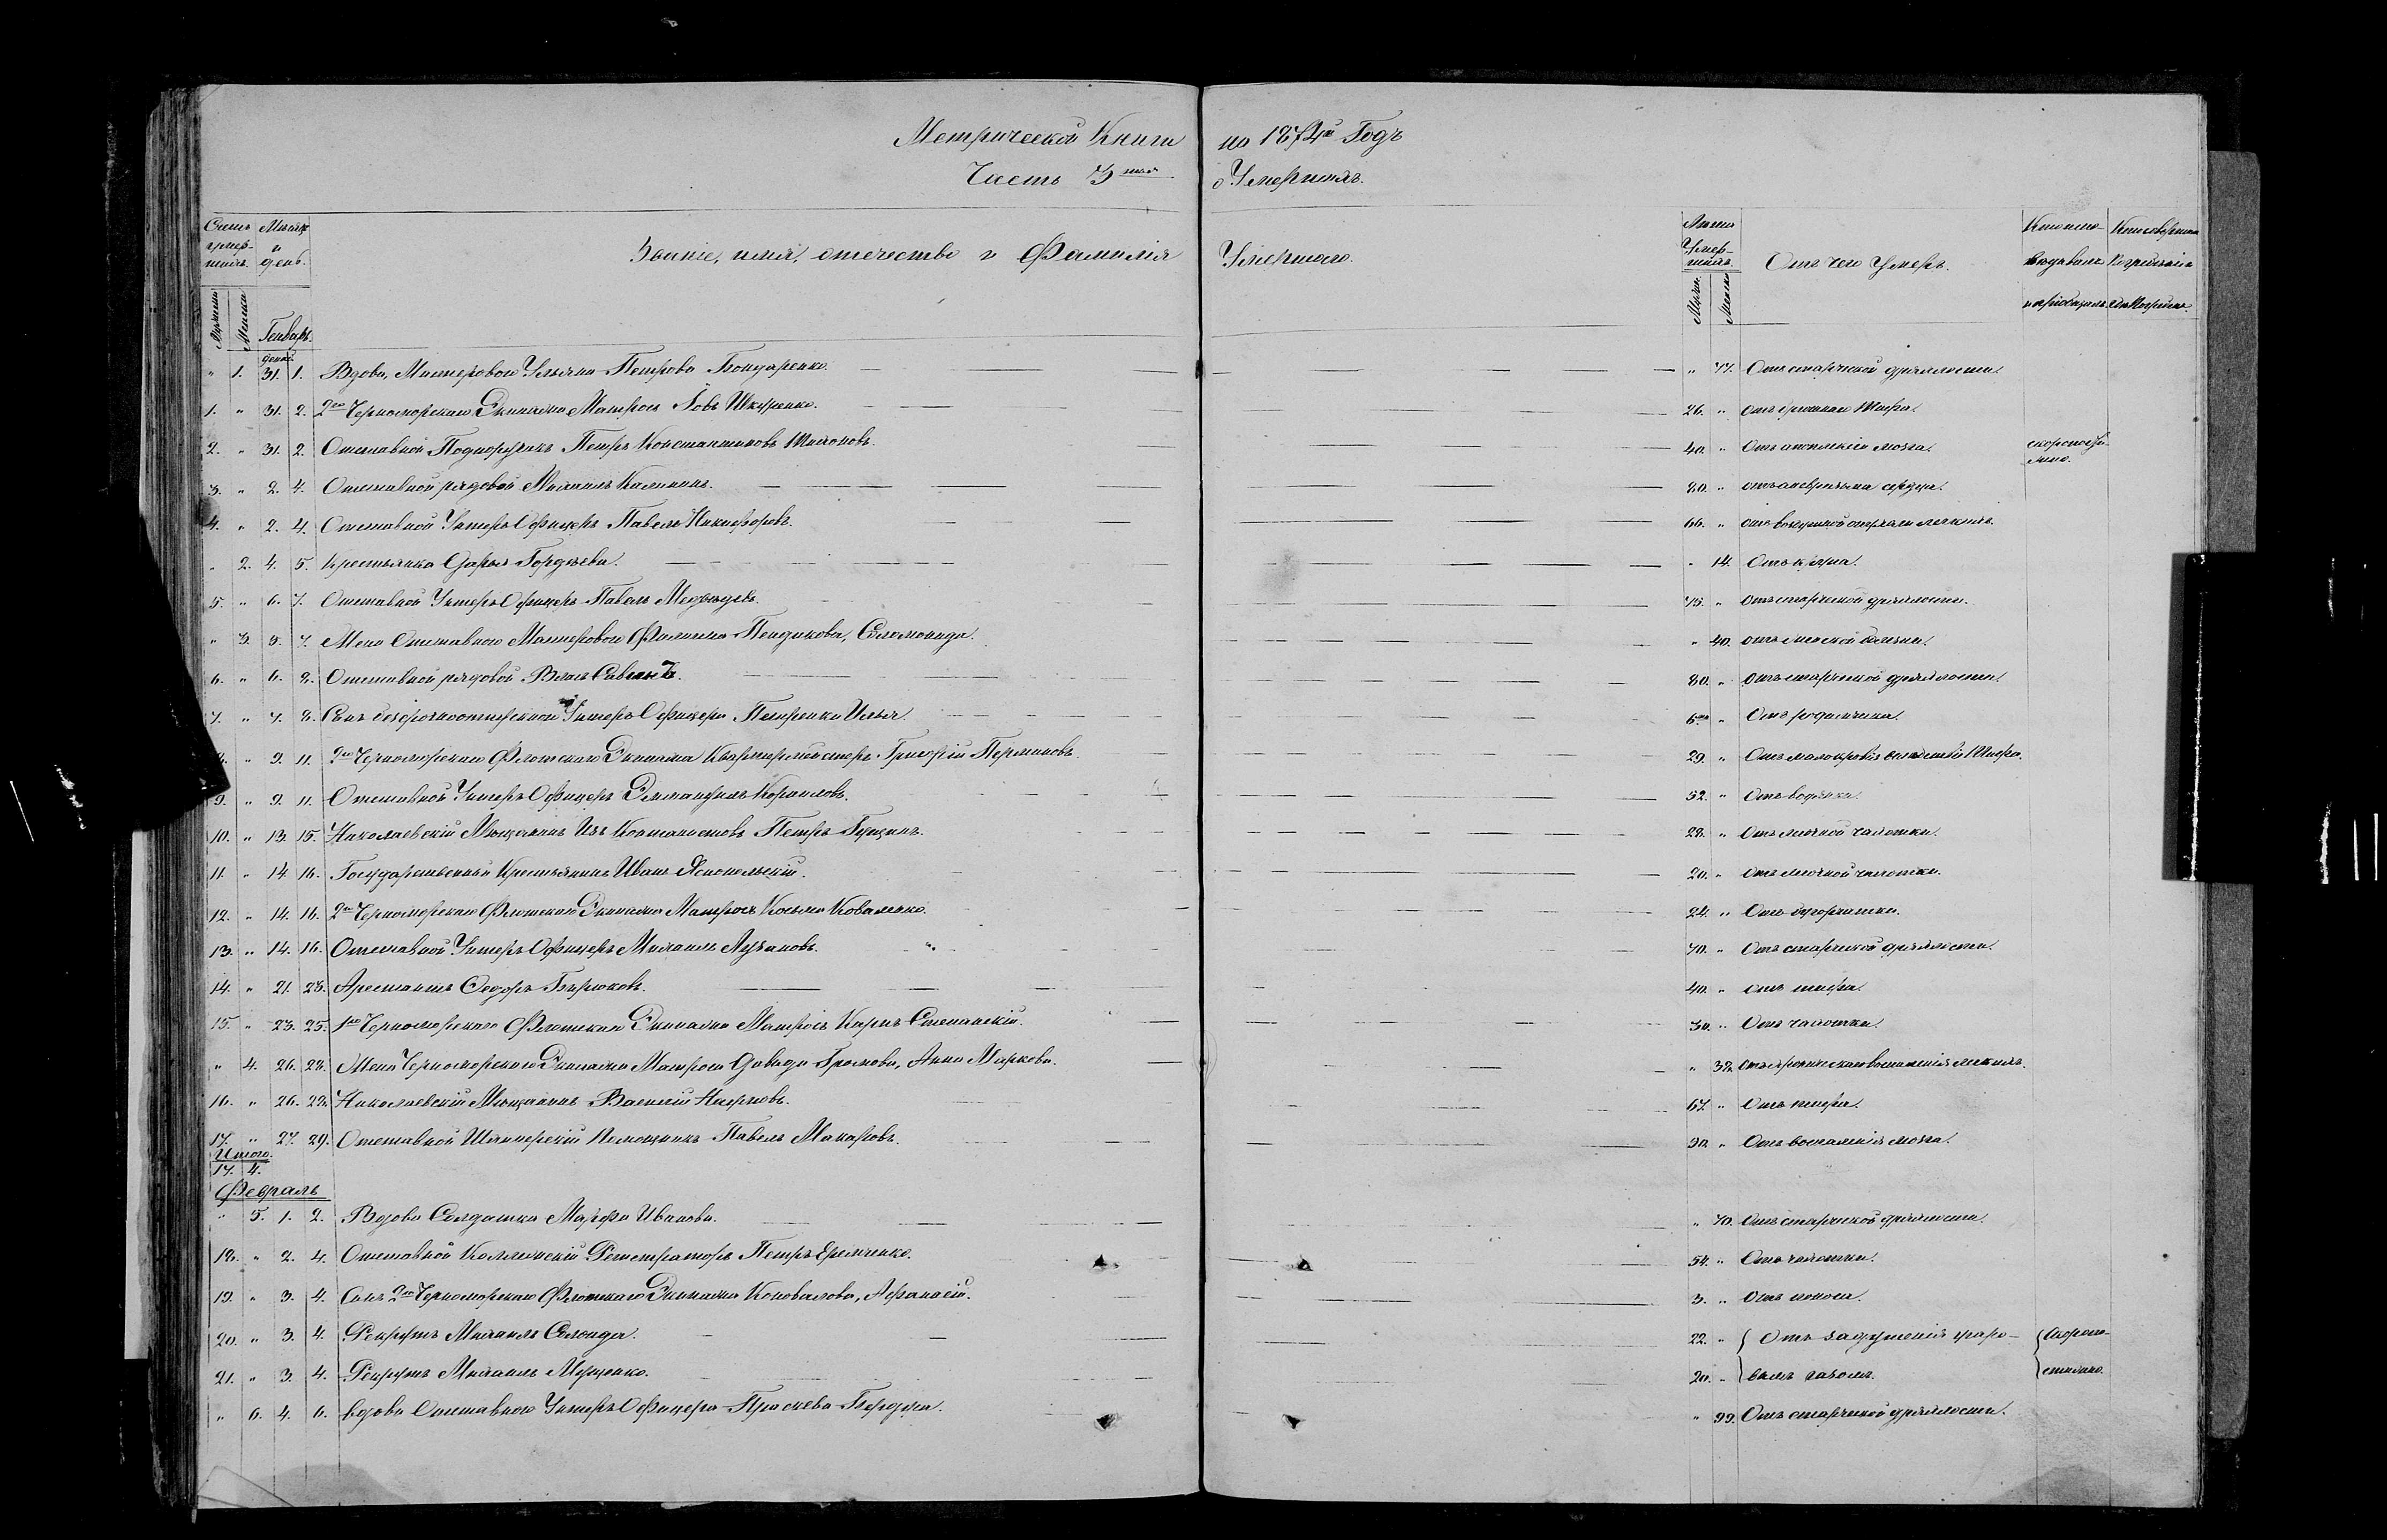 Метрической Книги на 1874й Годъ
Часть 3тья о Умершихъ.
Счетъ умершихъ. Мѣсяцъ и день. Званіе, имя, отечество и Фамилія Умершаго. Лѣта Умершихъ. Отъ чего Умеръ. Кто исповѣдывалъ и пріобщалъ.
Мужеска Женска Генварь. Мужес. Женск.
декаб.
" 1. 31. 1. Вдова, Мастероваго Ульяна Петрова Бондаренко. " 77. Отъ старческой дряхлости.
1. " 31. 2. 2го Черноморскаго Экипажа Матросъ Іовъ Шкуренко. 26. " отъ брюшнаго тифа.
2. " 31. 2. Отставной Подпоручикъ Петръ Константиновъ 40. " Отъ апоплексіи мозга. скоропостижно.
3. " 2. 4. Отставной рядовой Михаилъ Калининъ. 80. " отъ аневризма сердца.
4. " 2. 4. Отставной Унтеръ Офицеръ Павелъ Никифоровъ. 66. " легкихъ.
" 2. 4. 5. Крестьянка Дарья Гордѣева. " 14. Отъ крупа.
5. " 6. 7. Отставной Унтеръ Офицеръ Павелъ 75. " Отъ старческой дряхлости.
" 3. 5. 7. Жена Отставнаго Мастероваго Филиппа Пендикова, Соломонида. " 40. отъ женской болѣзни.
6. " 6. 8. Отставной рядовой Власъ Савинъ. 80. " Отъ старческой дряхлости.
7. " 7. 8. Сынъ безсрочноотпускного Унтеръ Офицера Петренки Илья. 6мѣс " Отъ родимчика.
8. " 9. 11. 2го Черноморскаго Флотскаго Экипажа Квартирмейстеръ Григорій Перминовъ. 29. " Отъ малокровія вслѣдствіе Тифа.
9. " 9. 11. Отставной Унтеръ Офицеръ Эммануилъ Корниловъ. 52. " Отъ водянки.
10. " 13. 15. Николаевскій Мѣщанинъ Изъ Кантонистовъ Петръ Гущинъ. 28. " Отъ легочной чахотки.
11. " 14. 16. Государственный Крестьянинъ Иванъ Яснопольскій. 20. " Отъ легочной чахотки.
12. " 14. 16. 2го Черноморскаго Флотскаго Экипажа Матросъ Косьма Коваленко. 24. " Отъ бугорчатки.
13. " 14. 16. Отставной Унтеръ Офицеръ Михаилъ Лузановъ. 70. " Отъ старческой дряхлости.
14. " 21. 23. Арестантъ Ѳедоръ Бирюковъ. 40. " отъ тифа.
15. " 23. 25. 1го Черноморскаго Флотскаго Экипажа Матросъ Карпъ Стопанскій. 30. " Отъ чахотки.
" 4. 26. 28. Жена Черноморскаго Экипажа Матроса Давида Громова, Анна Маркова. " 38. Отъ хроническаго воспаленія легкихъ.
16. " 26. 28. Николаевскій Мѣщанинъ Василій Наумовъ. 67. " Отъ тифа.
17. " 27. 29. Отставной Шкиперскій Помощникъ Павелъ Макаровъ. 30. " Отъ воспаленія мозга.
Итого.
17. 4.
Февраль
" 5. 1. 2. Вдова Солдатка Марфа Иванова. " 70. Отъ старческой дряхлости.
18. " 2. 4. Отставной Коллежскій Регистраторъ Петръ Еремченко. 54. " Отъ чахотки.
19. " 3. 4. Сынъ 2го Черноморскаго Флотскаго Экипажа Коновалова, Афанасій. 3. " Отъ поноса.
20. " 3. 4. Рекрутъ Михаилъ Слюнда. 22. " Отъ задушенія угаро- Скоропо-
21. " 3. 4. Рекрутъ Михаилъ Мущенко. 20. " вымъ газомъ. стижно.
" 6. 4. 6. вдова Отставнаго Унтеръ Офицера Праскева Бердуха. " 99. Отъ старческой дряхлости.